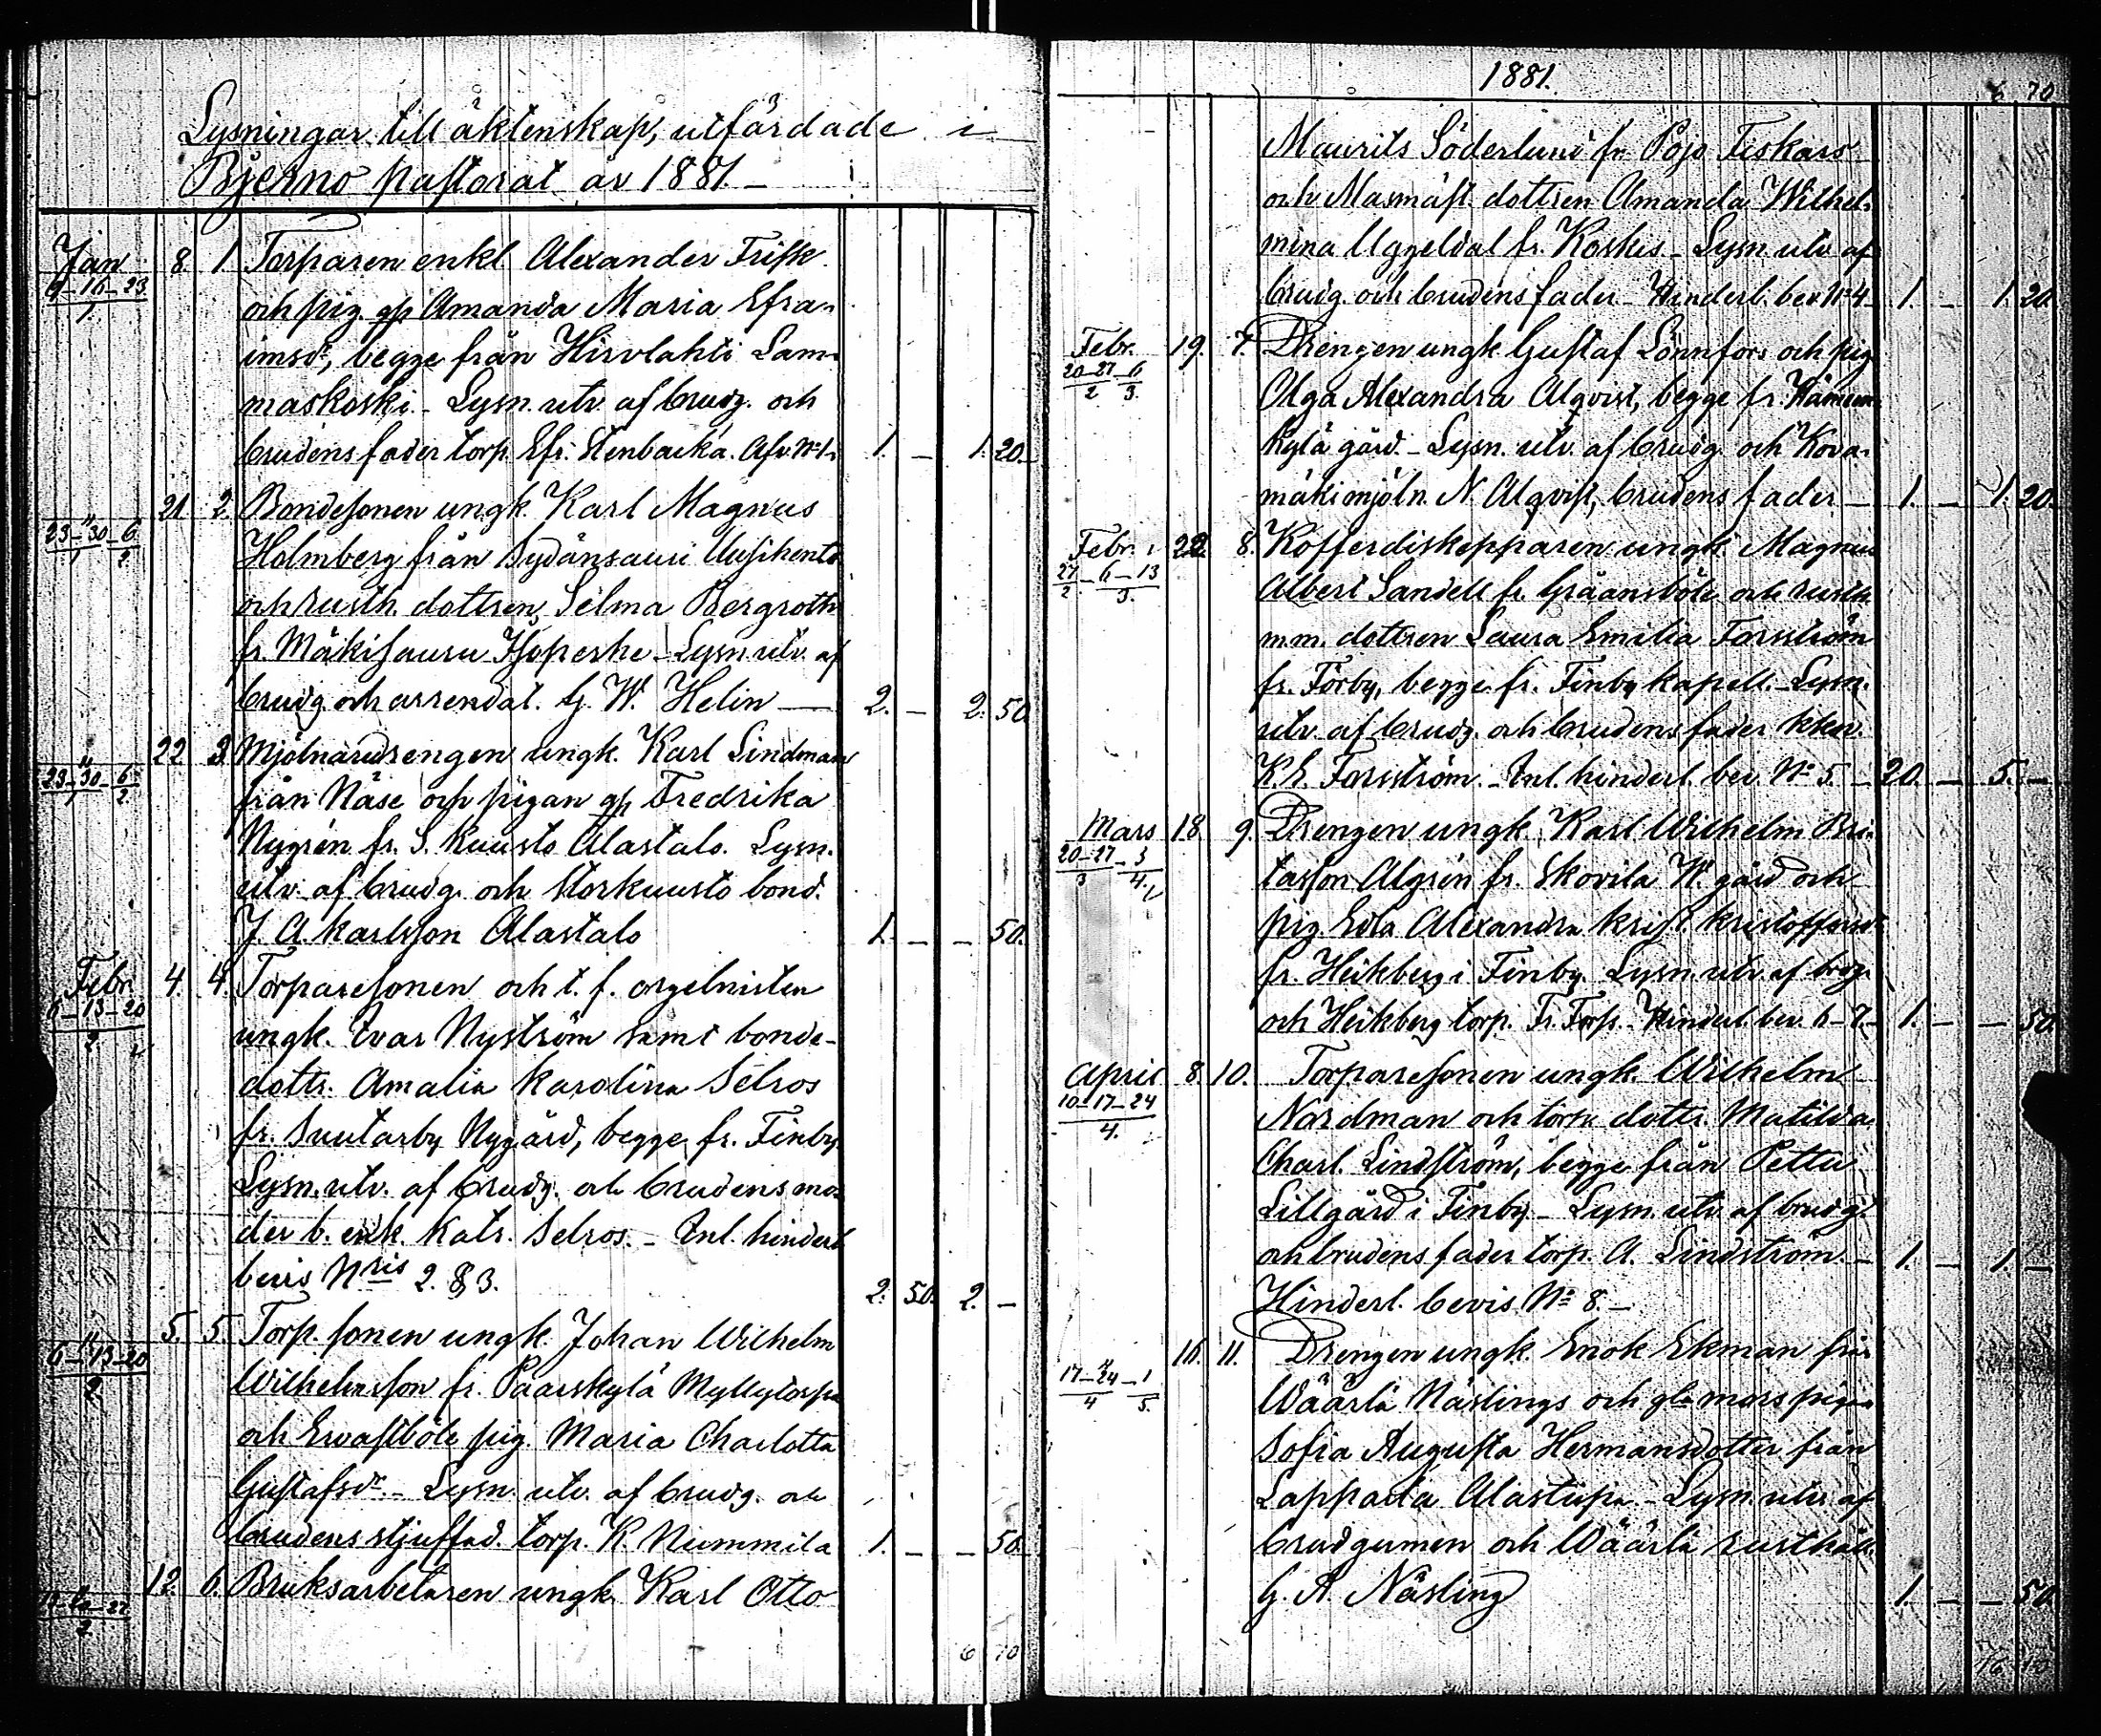 Lysningar till äktenskap, utfärdade i
Bjerno pastorat år 1881.
Jan. 8. 1. Torparen enkl Alexander Frisk
9-16-23
1.
och pig. qp Amanda Maria Efra-
imsdr, begge från Hirvlahti Lam-
maskoski. - Lysn. utv. af brudg. och
brudens fader torp. Efr. Stenbacka. Afv. No 1. 1. - 1. 20.
" 21 2. Bondesonen ungk. Karl Magnus
23-30-6
1 2
Holmberg från Sydänsauri
och rusth. dottren Selma Bergroth
fr. Mäkisauru - Lysn. utv. af
brudg. och arrendat. G. W. Helin - 2. - 2. 50
" 22 3. Mjölnaredrengen ungk. Karl Lindman
23-30-6
1 2
från Näse och pigan qp Fredrika
Nygrén fr. S. Kuusto Alastalo. Lysn.
utv. af brudg. och Storkuusto bond.
J. A. Karlsson Alastalo 1. - - 50.
Febr. 4. 4. Torparesonen och t. f. orgelnisten
6-13-20
2
ungk. Ivar Nyström samt bonde-
dottr. Amalia Karolina Selros
fr. Suutarby Nygård, begge fr. Finby
Lysn. utv. af brudg. och brudens mo-
der b. enk. Katr. Selros. - Inl. hinderl.
bevis Nris 2. & 3. 2. 50. 2. -
" 5. 5. Torp. sonen ungk. Johan Wilhelm
6-13-20
2
Wilhelmsson fr. Paarskylä Myllytorpa
och Ervastböle pig. Maria Charlotta
Gustafsdr. - Lysn. utv. af brudg. och
brudens stjuffad. torp. K. Nummila 1. - - 50.
12. 6. Bruksarbetaren ungk. Karl Otto
2
6 70
1881.
6 70
Maurits Söderlund fr. Pojo Fiskars
och Masmäst. dottren Amanda Wilhel-
mina Uggeldal fr. Koskis - Lysn. utv. af
brudg. och brudens fader - Hinderl. bev. No 4 1. - 1. 20.
Febr. 19. 7. Drengen ungk. Gustaf Lönnfors och pig.
20-27-6
2 3.
Olga Alexandra Alqvist, begge fr. Hämeen-
kylä gård. - Lysn. utv. af brudg. och Kova-
mäki mjöln. N. Alqvist, brudens fader - 1. - 1. 20.
Febr. 22. 8. Kofferdiskepparen ungk. Magnus
27-6-13
2 3.
Albert Sandell fr. Gräansböle och rusth.
m.m. dottren Laura Emilia Forsström
fr. Förby, begge fr. Finby kapell. - Lysn.
utv. af brudg. och brudens fader
K. E. Forsström. - Inl. hinderl. bev. No 5. - 20. - 5. -
Mars 18. 9. Drengen ungk. Karl Wilhelm Bri-
20-27-3
3 4.
tasson Algrén fr. Skovila W. gård och
pig. Edla Alexandra Krist. Kristoffersdr
fr. Heikberg i Finby. Lysn. utv. af brdg.
och Heikberg torp. Fr. Hinderl. bev. 6-7. 1. - - 50.
April 8. 10. Torparesonen ungk. Wilhelm
10-17-24
4.
Nordman och torp. dottr. Matilda
Charl. Lindström, begge från Pettu
Lillgård i Finby. - Lysn. utv. af brudg.
och brudens fader torp. A. Lindström. - 1. - 1. -
Hinderl. bevis No 8. -
" 16. 11. Drengen ungk. Enok Ekman från
17-24-1
4 5.
Wäärlä Näslings och pigan
Sofia Augusta Hermansdotter från
Lappatla Alastupa - Lysn. utv. af
brudgumen och Wäärlä rusthåll.
G. A. Näsling 1. - - 50.